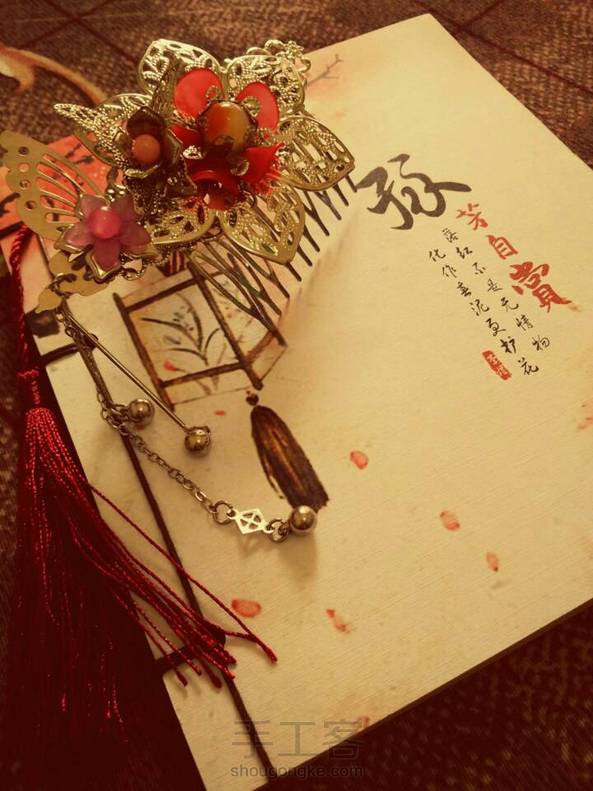 孤芳自賞
落红不是无情物
化作春泥更护花
手工客
shougongke.com